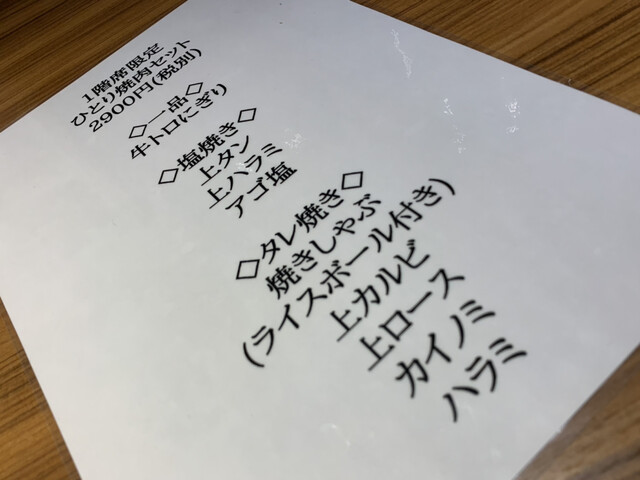 1階席限定
ひとり焼肉セット
2900円(税別)
◇一品◇
牛トロにぎり
◇塩焼き◇
上タン
上ハラミ
アゴ塩
◇タレ焼き◇
焼きしゃぶ
(ライスボール付き)
上カルビ
上ロース
カイノミ
ハラミ